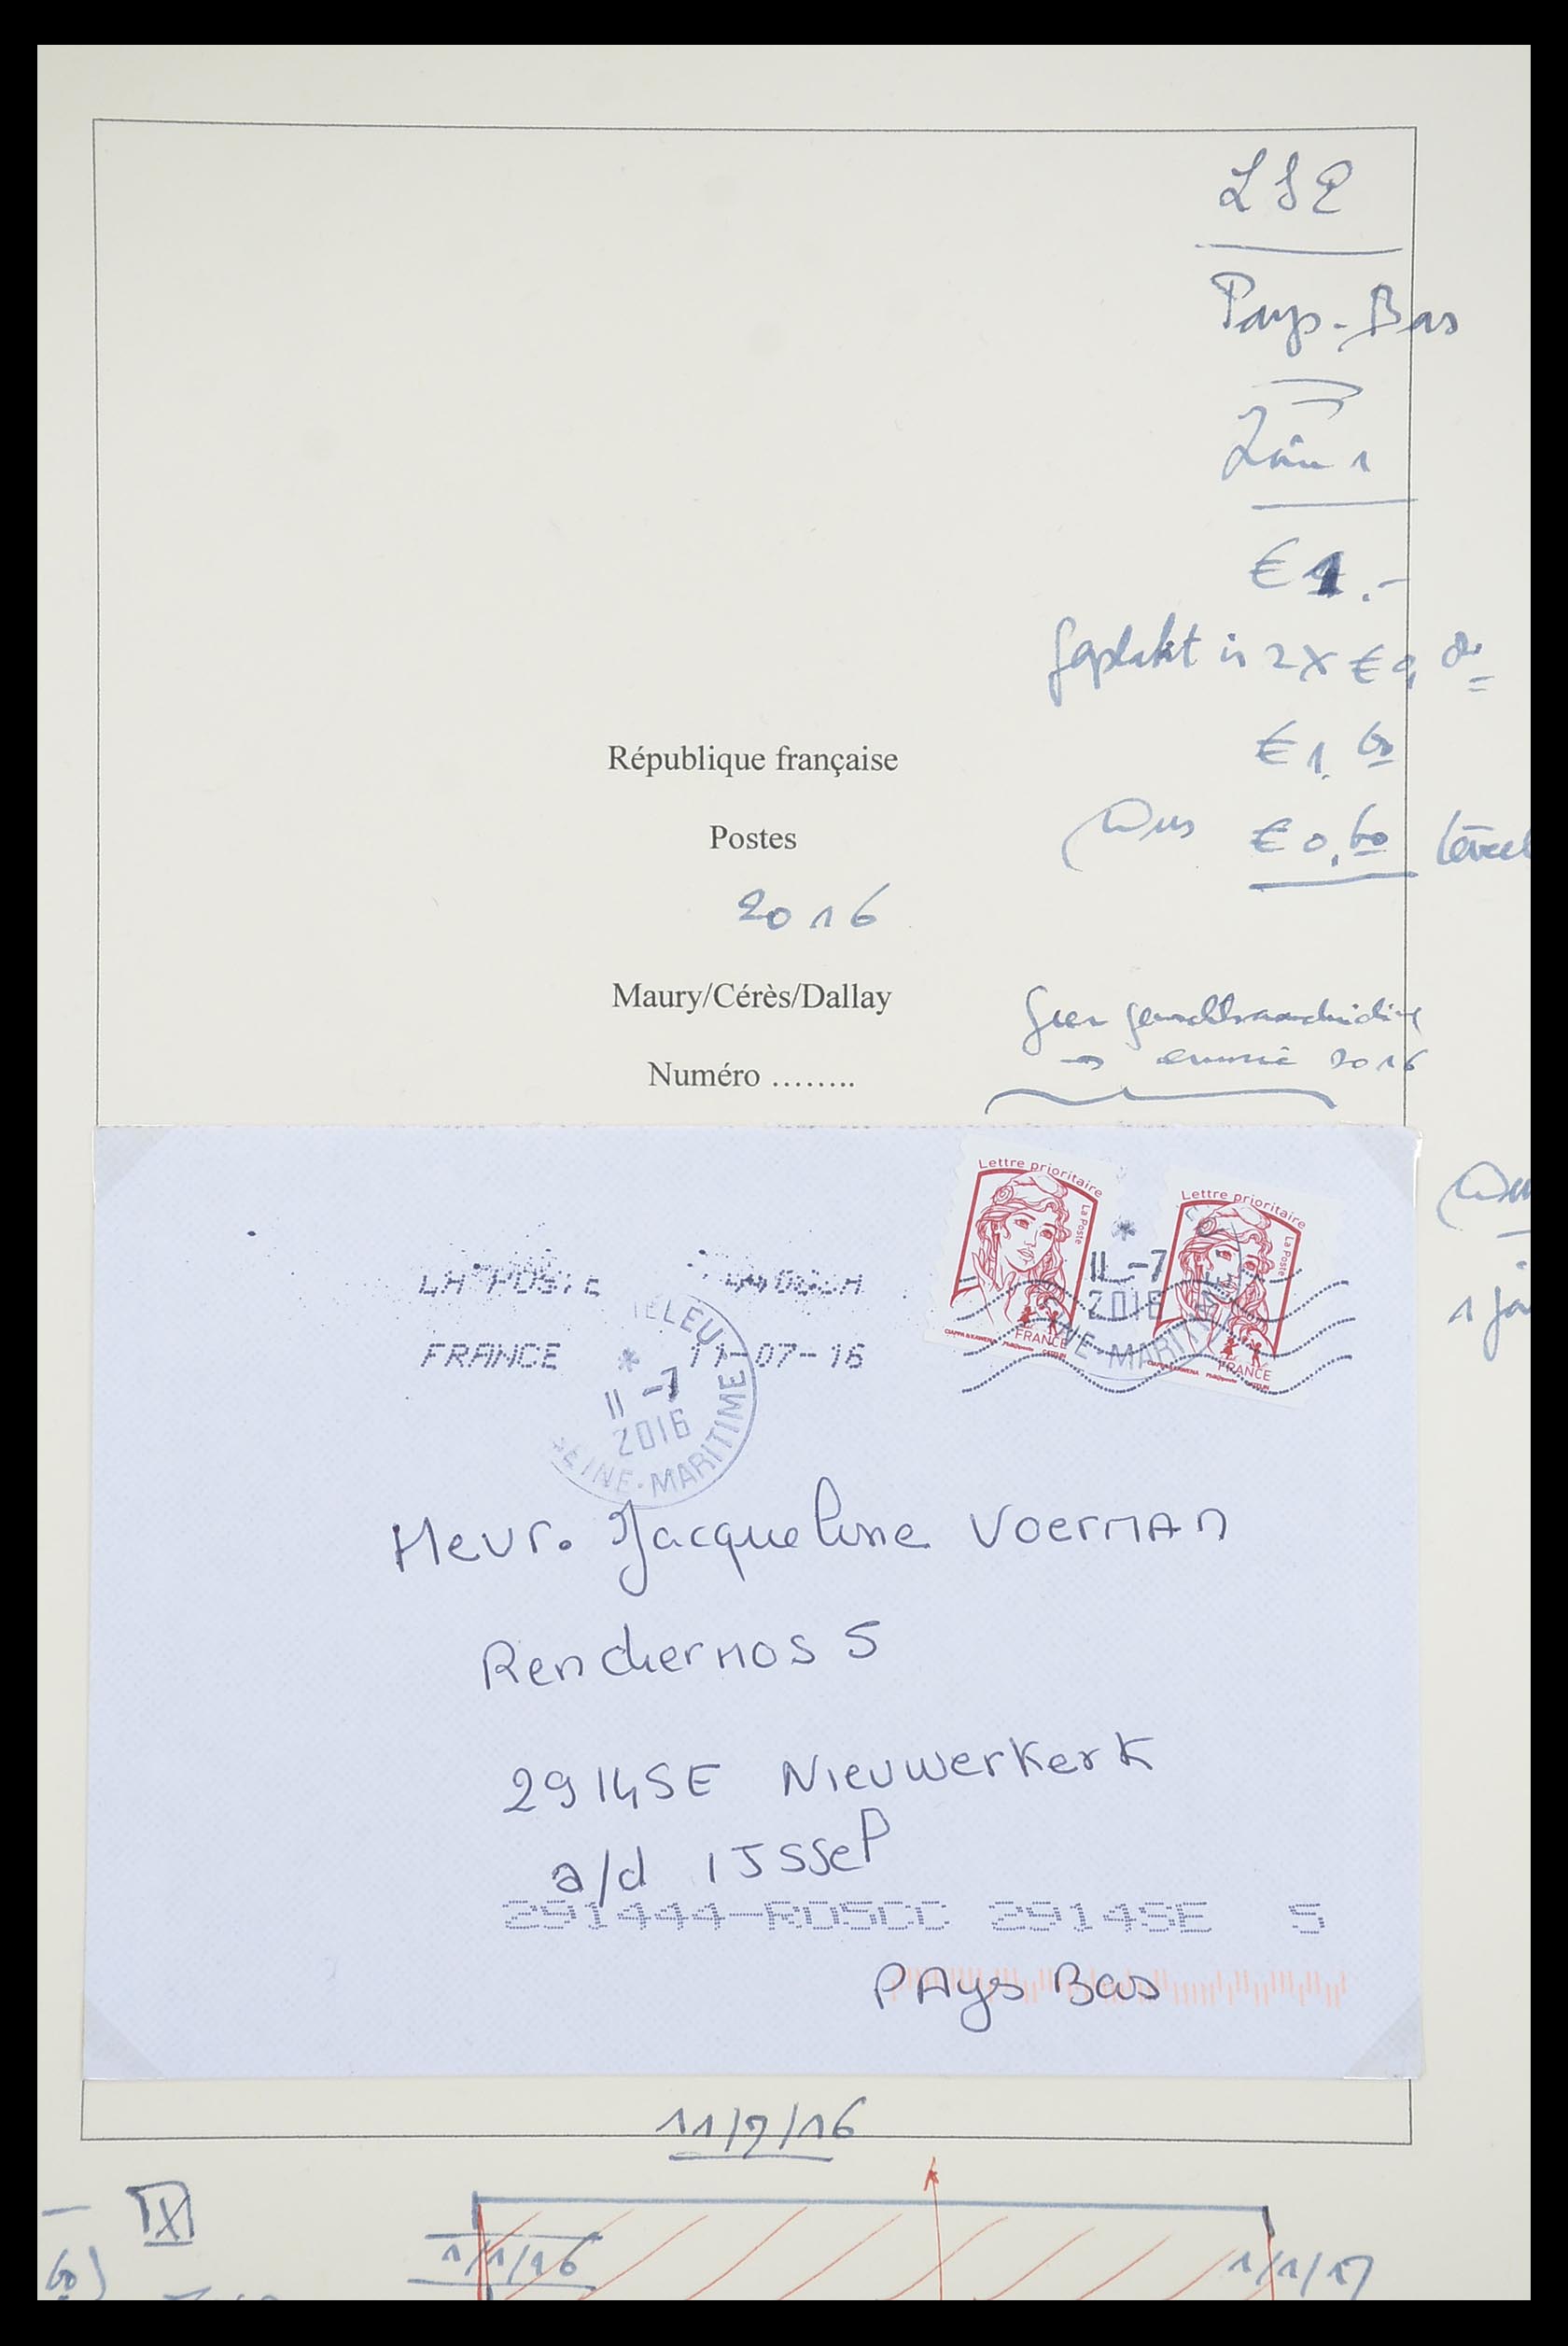 LSP
Pays-Bas
Zône 1
€ 1.-
Geplakt is 2 X € 0, 80
=
République française
€ 1, 60
Postes
Dus € 0,60
2016
Maury/Cérès/Dallay
Geen
Numéro ........
→ 2016
Lettre prioritaire
La Poste
FRANCE
Lettre prioritaire
La Poste
FRANCE
11 -7
2016
SEINE-MARITIME
LA POSTE
FRANCE 11-07-16
11 -7
2016
SEINE-MARITIME
Mevr. Jacqueline Voerman
Rendiermos 5
2914SE Nieuwerkerk
a/d IJssel
291444-ROSCC 2914SE 5
PAys Bas
11/7/16
1/1/16
1/1/17
60)